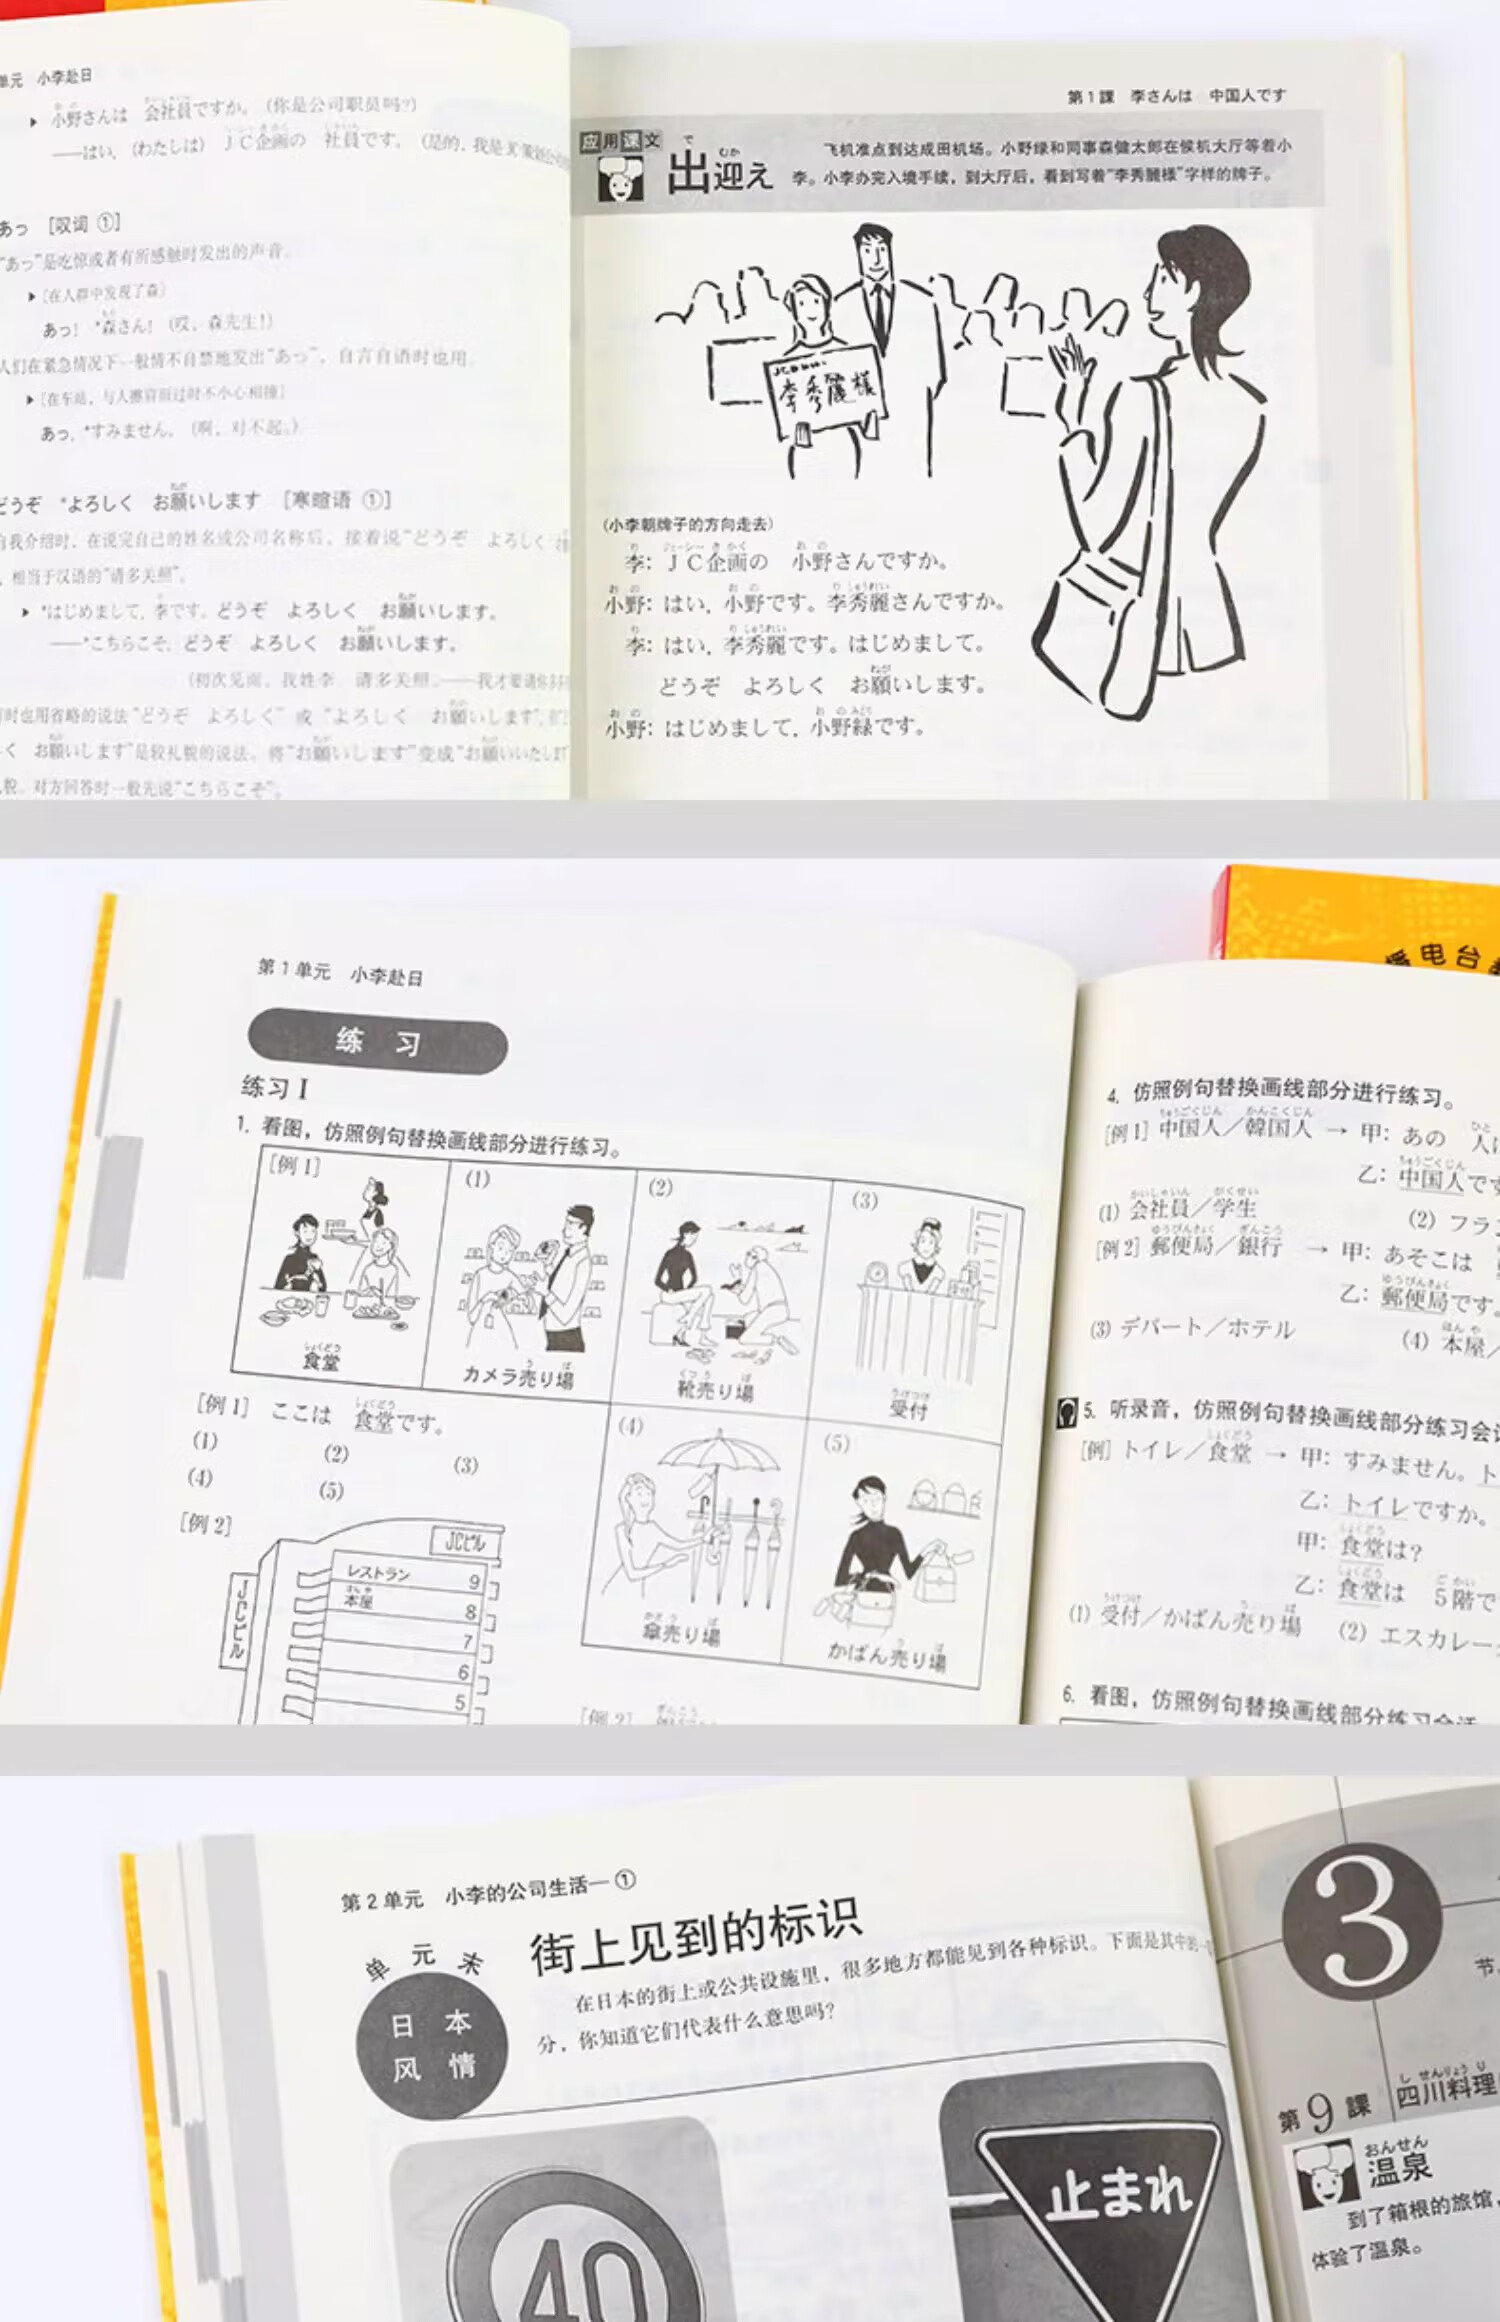 单元 小李赴日
小野さんは 会社員ですか。(你是公司职员吗?)
——はい,(わたしは) JC企画の 社員です。(是的,我是JC策划公司
あっ [叹词 ①]
"あっ"是吃惊或者有所感触时发出的声音。
[在人群中发现了森]
あっ! *森さん! (哎,森先生!)
人们在紧急情况下一般情不自禁地发出"あっ",自言自语时也用。
[在车站,与人擦肩而过时不小心相撞]
あっ,*すみません。(啊,对不起。)
どうぞ *よろしく お願いします [寒暄语 ①]
自我介绍时,在说完自己的姓名或公司名称后,接着说"どうぞ よろしく
,相当于汉语的"请多关照"。
*はじめまして,李です。どうぞ よろしく お願いします。
——*こちらこそ,どうぞ よろしく お願いします。
(初次见面,我姓李。请多关照。——我才要请你多
时也用省略的说法"どうぞ よろしく"或"よろしく お願いします",
く お願いします"是较礼貌的说法。将"お願いします"变成"お願いいたします
貌。对方回答时一般先说"こちらこそ"。
第1課 李さんは 中国人です
应用课文
出迎え
飞机准点到达成田机场。小野绿和同事森健太郎在候机大厅等着小
李。小李办完入境手续,到大厅后,看到写着"李秀麗様"字样的牌子。
李秀麗様
(小李朝牌子的方向走去)
李: JC企画の 小野さんですか。
小野: はい,小野です。李秀麗さんですか。
李: はい,李秀麗です。はじめまして。
どうぞ よろしく お願いします。
小野: はじめまして,小野緑です。
第1单元 小李赴日
练习
练习Ⅰ
1. 看图,仿照例句替换画线部分进行练习。
[例1]
(1)
(2)
(3)
食堂
カメラ売り場
靴売り場
受付
[例1] ここは 食堂です。
(1) (2) (3)
(4) (5)
(4)
(5)
傘売り場
かばん売り場
[例2]
JCビル
JCビル
レストラン 9
本屋 8
7
6
5
[例2]
電台
4. 仿照例句替换画线部分进行练习。
[例1] 中国人/韓国人 → 甲: あの 人は
乙: 中国人です
(1) 会社員/学生
(2) フラン
[例2] 郵便局/銀行 → 甲: あそこは
乙: 郵便局です。
(3) デパート/ホテル
(4) 本屋/
5. 听录音,仿照例句替换画线部分练习会话
[例] トイレ/食堂 → 甲: すみません。ト
乙: トイレですか。
甲: 食堂は?
乙: 食堂は 5階で
(1) 受付/かばん売り場
(2) エスカレー
6. 看图,仿照例句替换画线部分练习会话
第2单元 小李的公司生活—①
单元末
日本
风情
街上见到的标识
在日本的街上或公共设施里,很多地方都能见到各种标识。下面是其中的一
分,你知道它们代表什么意思吗?
40
止まれ
3
节,
第9課 四川料理
温泉
到了箱根的旅馆,
体验了温泉。